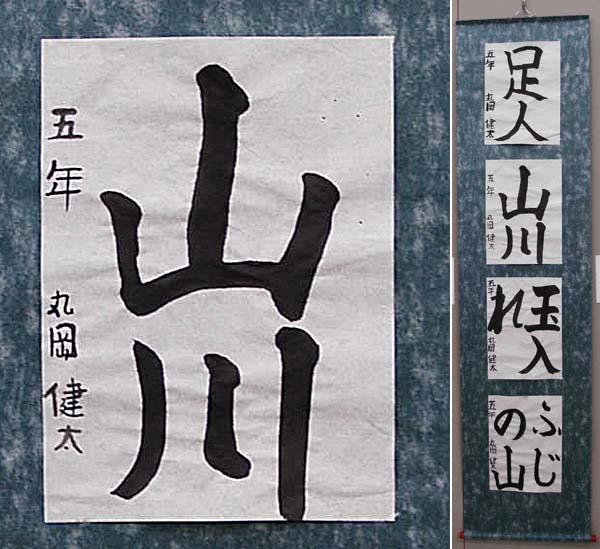 山川
五年 丸岡健太
足人
五年 丸岡健太
山川
五年 丸岡健太
玉入
れ
五年 丸岡健太
ふじ
の山
五年 丸岡健太